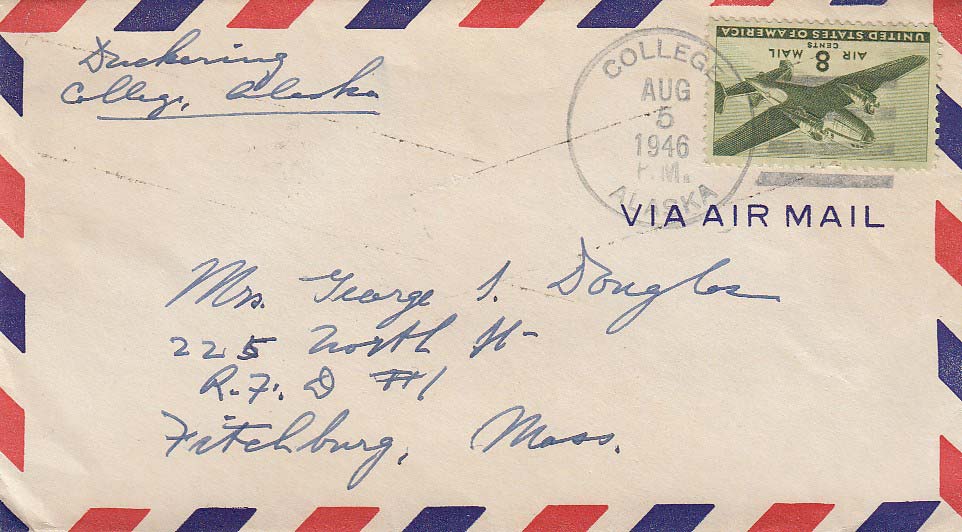 Duckering
College, Alaska
COLLEGE
AUG
5
1946
P.M.
ALASKA
UNITED STATES OF AMERICA
AIR MAIL
8
CENTS
VIA AIR MAIL
Mrs. George S. Douglas
225 North St
R.F.D #1
Fitchburg, Mass.